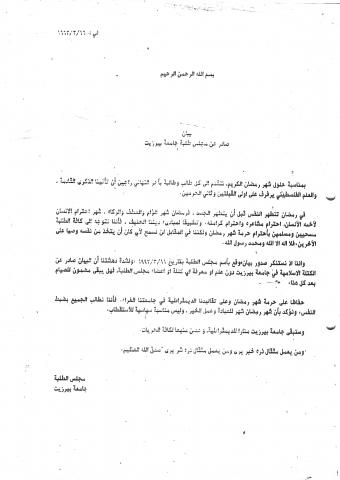 في : ١٩٩٣/٢/٢٦
بسم الله الرحمن الرحيم
بيان
صادر عن مجلس طلبة جامعة بيرزيت
بمناسبة حلول شهر رمضان الكريم، نتقدم الى كل طالب وطالبة بأحر التهاني راجين أن تأتينا الذكرى القادمة ،
والعلم الفلسطيني يرفرف على اولى القبلتين وثاني الحرمين.
في رمضان تتطهر النفس قبل أن يتطهر الجسد ، فرمضان شهر التزام والعطف والزكاة، شهر احترام الانسان
لأخيه الانسان، احترام مشاعره واحترام كرامته. وتطبيقا لمبادئ ديننا الحنيف ، فأننا نتوجه الى كافة الطلبة
مسيحيين ومسلمين بأحترام حرمة شهر رمضان ولكننا في المقابل لن نسمح لأي كان أن يتخذ من نفسه وصيا على
الآخرين، فلا اله الا الله ومحمد رسول الله.
واننا اذ نستنكر صدور بيان موقع بأسم مجلس الطلبة بتاريخ ١٩٩٣/٢/٢١ ولشدة دهشتنا أن البيان صادر عن
الكتلة الاسلامية في جامعة بيرزيت دون علم او معرفة اي كتلة او اعضاء مجلس الطلبة، فهل يبقى مضمون للصيام
بعد كل هذا؟
حفاظا على حرمة شهر رمضان وعلى تقاليدنا الديمقراطية في جامعتنا الغراء، فأننا نطالب الجميع بضبط
النفس، ونؤكد بأن شهر رمضان شهر للعبادة وعمل الخير ، وليس مناسبة سياسية للاستقطاب.
وستبقى جامعة بيرزيت منارا للديمقراطية، و لكافة الحريات.
ومن يعمل مثقال ذرة خير يرى ومن يعمل مثقال ذرة شر يرى "صدق الله العظيم"
مجلس الطلبة
جامعة بيرزيت